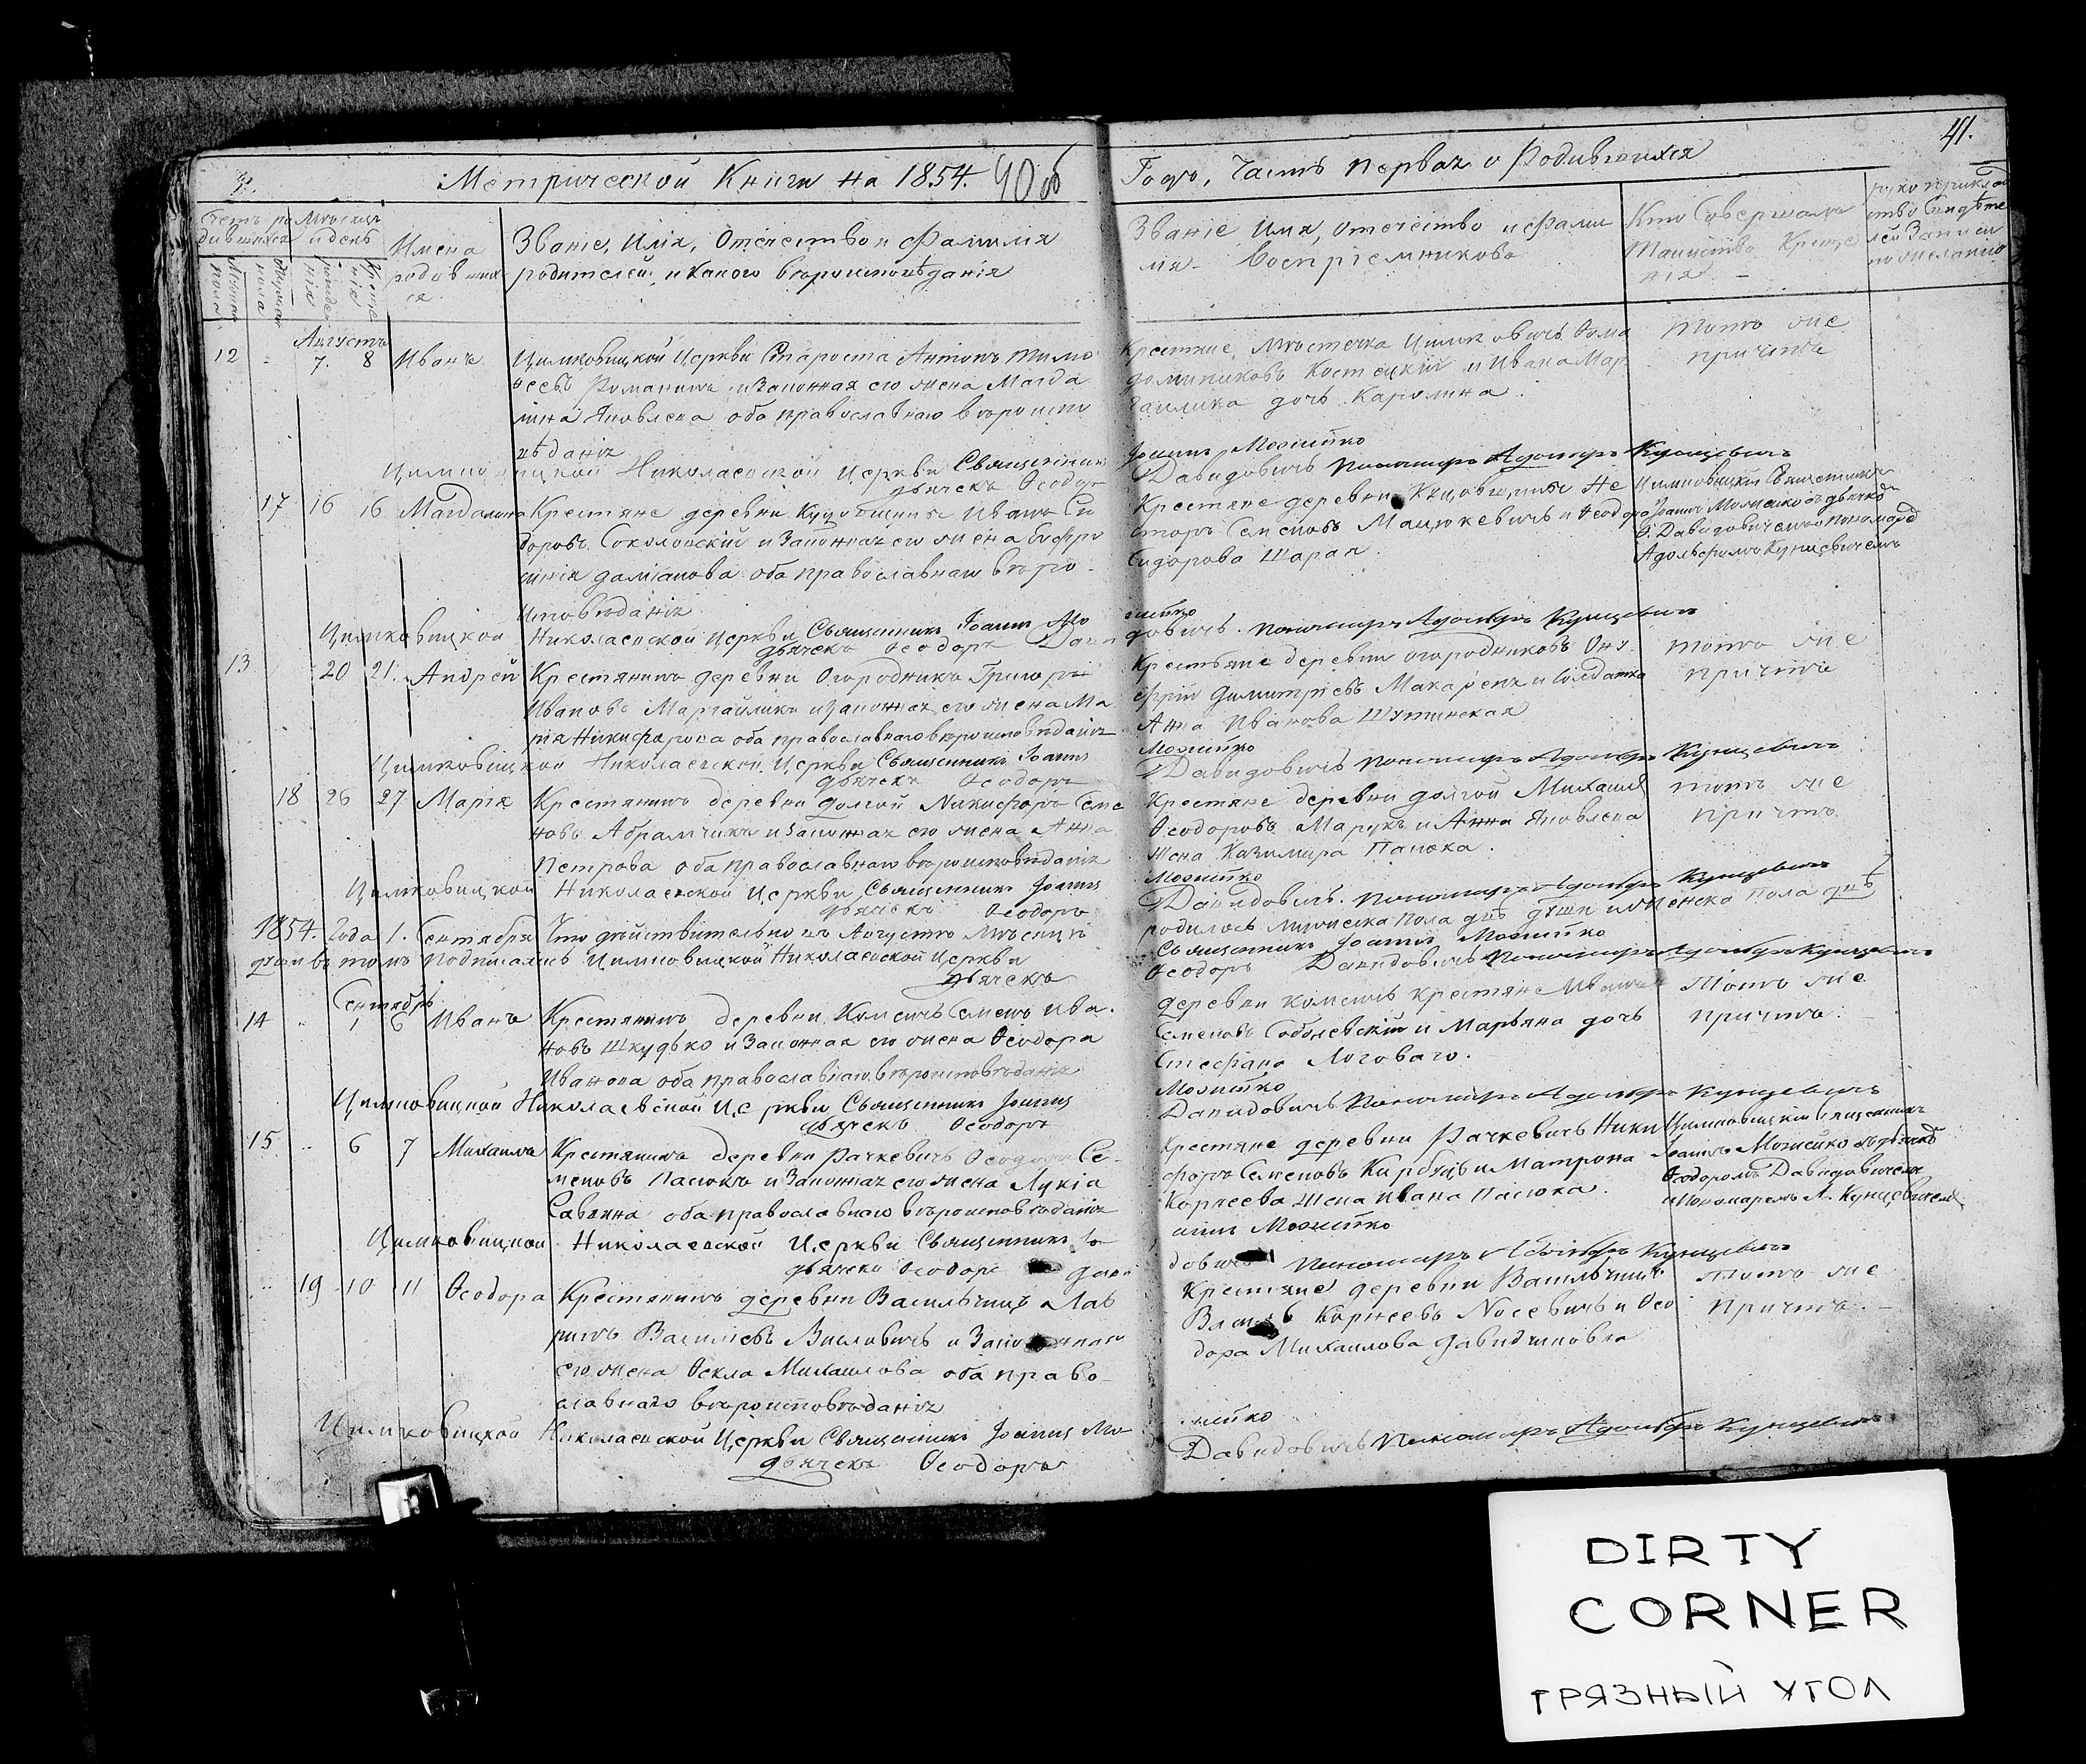 Метрической Книги на 1854. 40 об
Годъ, Часть первая о Родившихся
41.
Счетъ родившихся
Мѣсяцъ и день
Имена родившихся.
Званіе, Имя, Отечество и Фамилія
родителей, и какого вѣроисповѣданія
Званіе Имя, Отечество и Фами
лія Воспріемниковъ
Кто Совершалъ
Таинство Креще
нія. –
Августъ
12 7. 8 Иванъ
Цимковицкой Церкви Староста Антонъ Тимо
ѳеевъ Романитъ и Законная его жена Магда
лина Яковлева оба православнаго вѣроиспо
вѣданія
Крестяне Мѣстечка Цимковичъ Ѳома
Доминиковъ Костецкій и Ивана Мар
гайлика дочь Каролина.
Тотъ же
причтъ
Цимковицкой Николаевской Церкви Священникъ
ІоаннъМожейко
дьячекъ Ѳеодоръ
Давидовичъ Пономарь Адольфъ Кунцевичъ
17 16 16 Магдалина
Крестяне деревни Кудовщины Иванъ Си
доровъ Соколовскій и Законная его жена Евфро
синія Даміанова оба православнаго вѣро-
исповѣданія
Крестяне деревни Кудовщины Не
сторъ Семеновъ Мацюкевичъ и Ѳеодора
Сидорова Шарая.
Цимковицкій Священникъ
Іоаннъ Можейко съ дьячко
Ѳ. Давидовичемъ и пономаремъ
Адольфомъ Кунцевичемъ
Цимковицкой Николаевской Церкви Священникъ Іоаннъ Мо
жейко
дьячекъ Ѳеодоръ Дави
довичъ. Пономарь Адольфъ Кунцевичъ
13 20 21. Андрей
Крестянинъ деревни Огородникъ Григорій
Ивановъ Маргайликъ и Законная его жена Ма
рія Никифорова оба православнаго вѣроисповѣданія
Крестьяне деревни Огородниковъ Ону
фрій Димитріевъ Макареня и Солдатка
Анна Иванова Шутинская
тотъ же
причтъ
Цимковицкой Николаевской Церкви Священникъ Іоаннъ
Можейко
дьячекъ Ѳеодоръ
Давидовичъ Пономарь Адольфъ Кунцевичъ
18 26 27 Марія
Крестянинъ деревни Долгой Никифоръ Семе
новъ Абрамчикъ и Законная его жена Анна
Петрова оба православнаго вѣроисповѣданія
Крестяне деревни Долгой Михаилъ
Ѳеодоровъ Марукъ и Анна Яковлева
жена Казимира Пасюка.
тотъ же
причтъ
Цимковицкой Николаевской Церкви Священникъ Іоаннъ
Можейко
дьячекъ Ѳеодоръ
Давидовичъ. Пономарь Адольфъ Кунцевичъ
1854. Года 1. Сентября Что дѣйствительно въ Августѣ Мѣсяцѣ
родилось мужеска пола двѣ души и женска пола двѣ
души въ томъ подписались Цимковицкой Николаевской Церкви
Священникъ Іоаннъ Можейко
дьячекъ
Ѳеодоръ Давидовичъ Пономарь Адольфъ Кунцевичъ
Сентябрь
14 1 6 Иванъ
Крестянинъ деревни Комсичъ Семенъ Ива
новъ Шкудько и Законная его жена Ѳеодора
Иванова оба православнаго вѣроисповѣданія
деревни Комсичъ крестяне Иванъ
Семеновъ Соболевскій и Марьяна дочь
Стефана Логоваго.
Тотъ же
причтъ.
Цимковицкой Николаевской Церкви Священникъ Іоаннъ
Можейко
дьячекъ Ѳеодоръ
Давидовичъ Пономарь Адольфъ Кунцевичъ
15. 6 7 Михаилъ
Крестянинъ деревни Рачкевичъ Ѳеодоръ Се-
меновъ Пасюкъ и Законная его жена Лукія
Саввина оба православнаго вѣроисповѣданія
Крестяне деревни Рачкевичъ Ники
форъ Семеновъ Карбуць и Матрона
Корнеева жена Ивана Пасюка.
Цимковицкій Священникъ
Іоаннъ Можейко съ дьячко
Ѳеодоромъ Давидовичемъ
и Пономаремъ А. Кунцевичемъ
Цимковицкой Николаевской Церкви Священникъ Іо
аннъ Можейко
дьячекъ Ѳеодоръ Дави
довичъ Пономарь Адольфъ Кунцевичъ
19 10 11 Ѳеодора
Крестянинъ деревни Васильчицъ Лав
ринъ Василіевъ Висловичъ и Законная
его жена Ѳекла Михаилова оба право-
славнаго вѣроисповѣданія
Крестяне деревни Васильчицъ
Василь Корнеевъ Носевичъ и Ѳео
дора Михаилова Давидчиковна
тотъ же
причтъ. –
Цимковицкой Николаевской Церкви Священникъ Іоаннъ Мо-
жейко
дьячекъ Ѳеодоръ
Давидовичъ Пономарь Адольфъ Кунцевичъ
DIRTY
CORNER
ГРЯЗНЫЙ УГОЛ